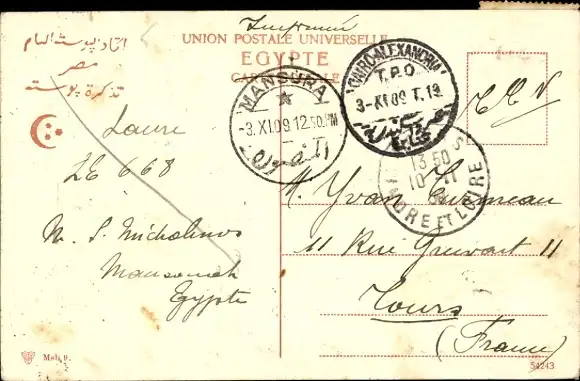 Imprimé
UNION POSTALE UNIVERSELLE
EGYPTE
CARTE POSTALE
اتحاد البوستة العام
مصر
تذكرة بوستة
MANSURA
-3.XI.09.12.50.PM
المنصورة
CAIRO-ALEXANDRIA
T.P.O
3-XI.09 T.19
13 50
10 - 11
INDRE ET LOIRE
T.C.V
Laure
LE 668
M. S. Micholinos
Mansourah
Egypte
M. Yvan
11 Rue
11
Tours
(France)
Msb 9.
54243